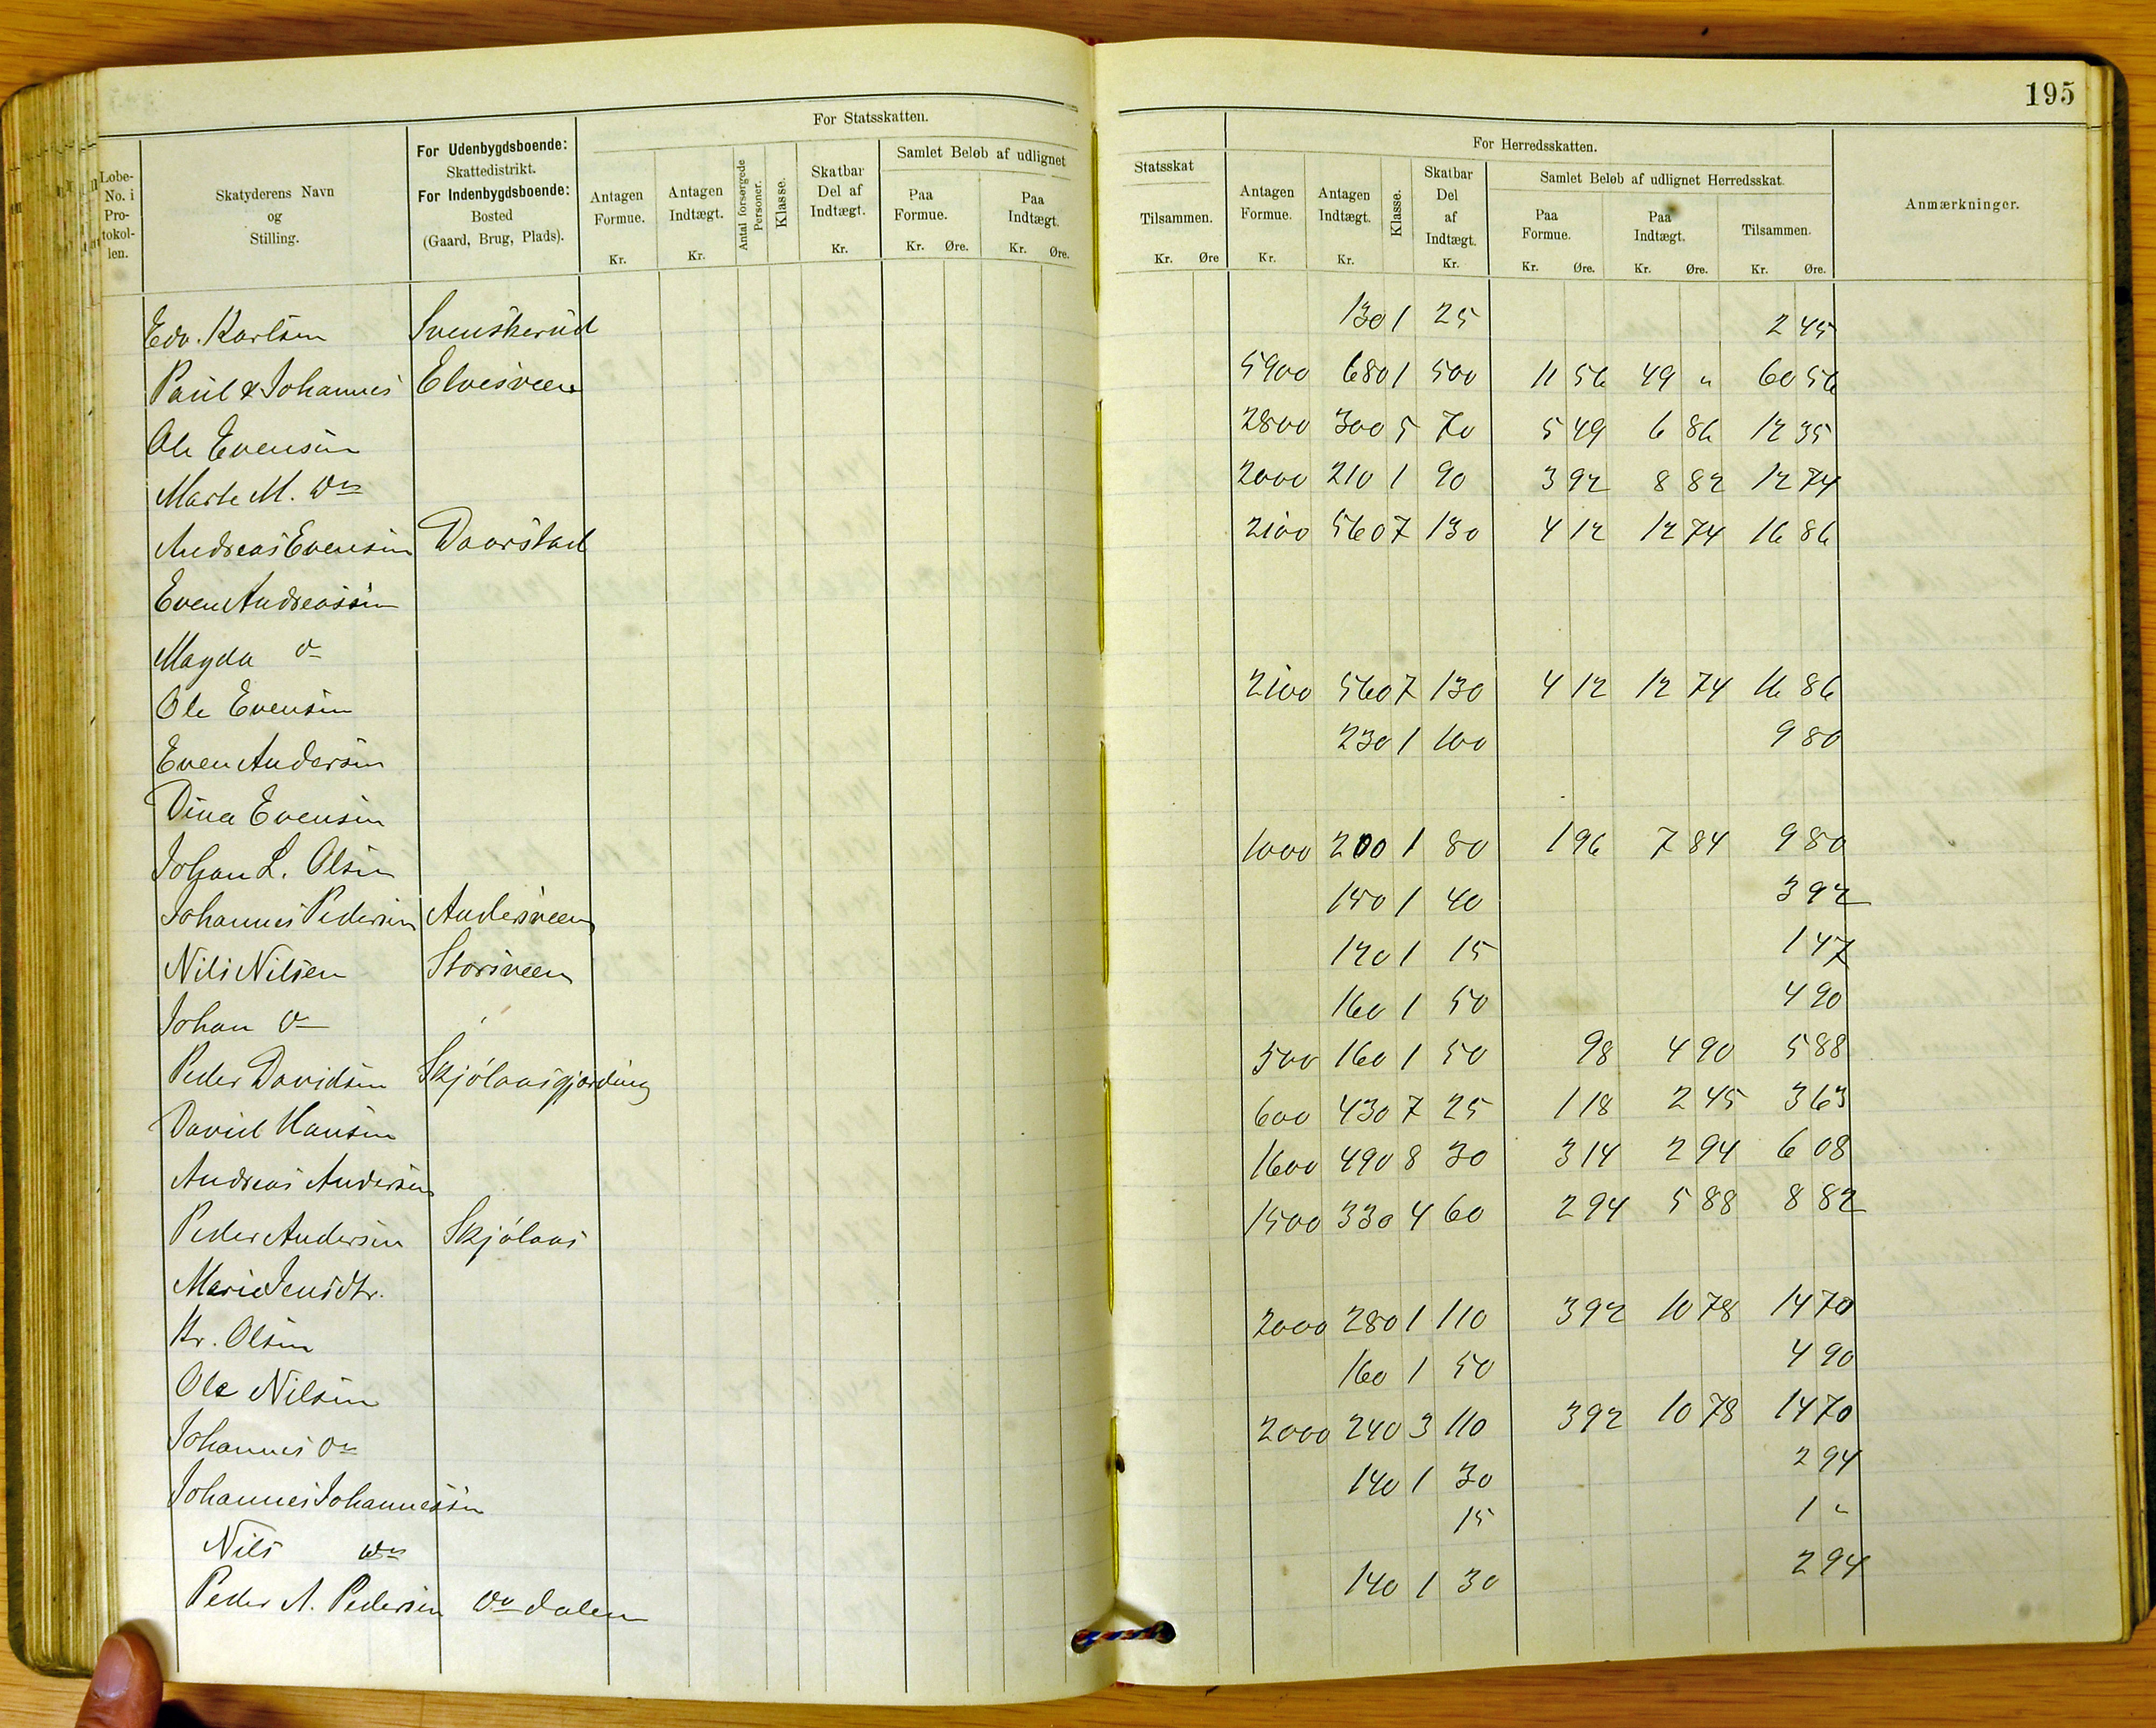 195
For Statsskatten.
For Herredsskatten.
Lobe-No. i Pro-tokol-len.
Skatyderens Navn og Stilling.
For Udenbygdsboende: Skattedistrikt. For Indenbygdsboende: Bosted (Gaard, Brug, Plads).
Antagen Formue. Kr.
Antagen Indtægt. Kr.
Antal forsørgede Personer.
Klasse.
Skatbar Del af Indtægt. Kr.
Samlet Beløb af udlignet
Paa Formue. Kr. Øre.
Paa Indtægt. Kr. Øre.
Statsskat
Tilsammen. Kr. Øre
Antagen Formue. Kr.
Antagen Indtægt. Kr.
Klasse.
Skatbar Del af Indtægt. Kr.
Samlet Beløb af udlignet Herredsskat.
Paa Formue. Kr. Øre.
Paa Indtægt. Kr. Øre.
Tilsammen. Kr. Øre.
Anmærkninger.
Edv. Karlsen Svenskerud 130 1 25 2 45
Paul & Johannes Elvesveen 5900 680 1 500 11 56 49 " 60 56
Ole Evensen 2800 300 5 70 5 49 6 86 12 35
Marte M. Do 2000 210 1 90 3 92 8 82 12 74
Andreas Evensen Daarstad 2100 560 7 130 4 12 12 74 16 86
Even Andreassen
Magda do
Ole Evensen 2100 560 7 130 4 12 12 74 16 86
Even Andersen 230 1 100 9 80
Dina Evensen
Johan L. Olsen 1000 200 1 80 1 96 7 84 9 80
Johannes Pedersen Andersveen 150 1 40 3 92
Nils Nilsen Storsveen 120 1 15 1 47
Johan do 160 1 50 4 90
Peder Davidsen Skjölaasgjording 500 160 1 50 98 4 90 5 88
David Hansen 600 430 7 25 1 18 2 45 3 63
Andreas Andersen 1600 490 8 30 3 14 2 94 6 08
Peder Andersen Skjölaas 1500 330 4 60 2 94 5 88 8 82
Marie Jensdtr.
Kr. Olsen 2000 280 1 110 3 92 10 78 14 70
Ole Nilsen 160 1 50 4 90
Johannes do 2000 240 3 110 3 92 10 78 14 70
Johannes Johannessen 140 1 30 2 94
Nils do 15 1 "
Peder A. Pedersen do dalen 140 1 30 2 94